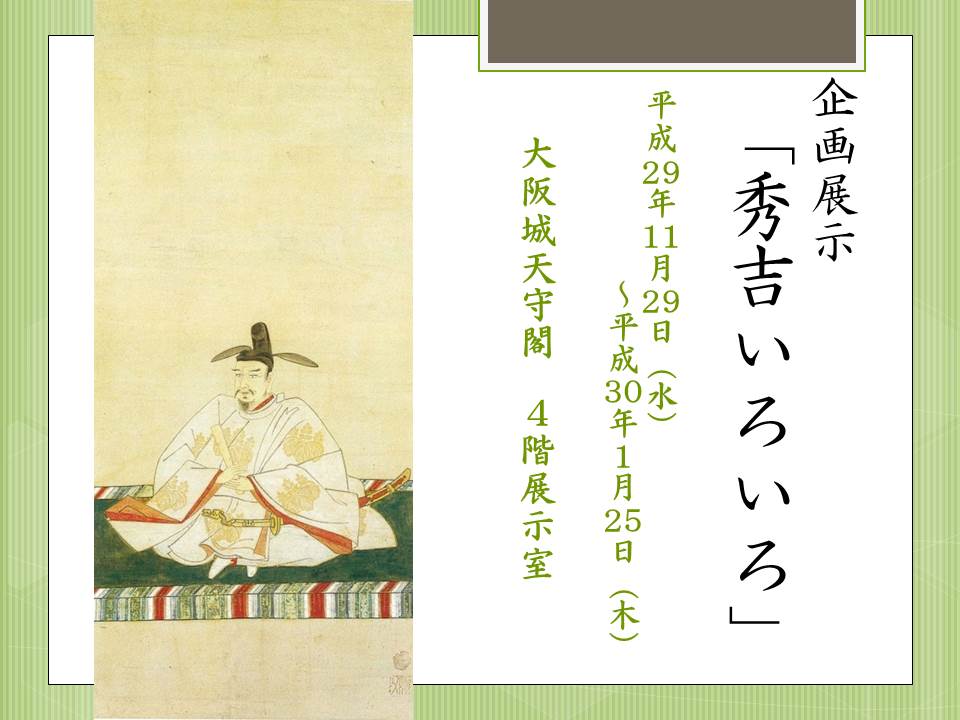 企画展示
「秀吉いろいろ」
平成29年11月29日（水）
～平成30年1月25日（木）
大阪城天守閣　4階展示室